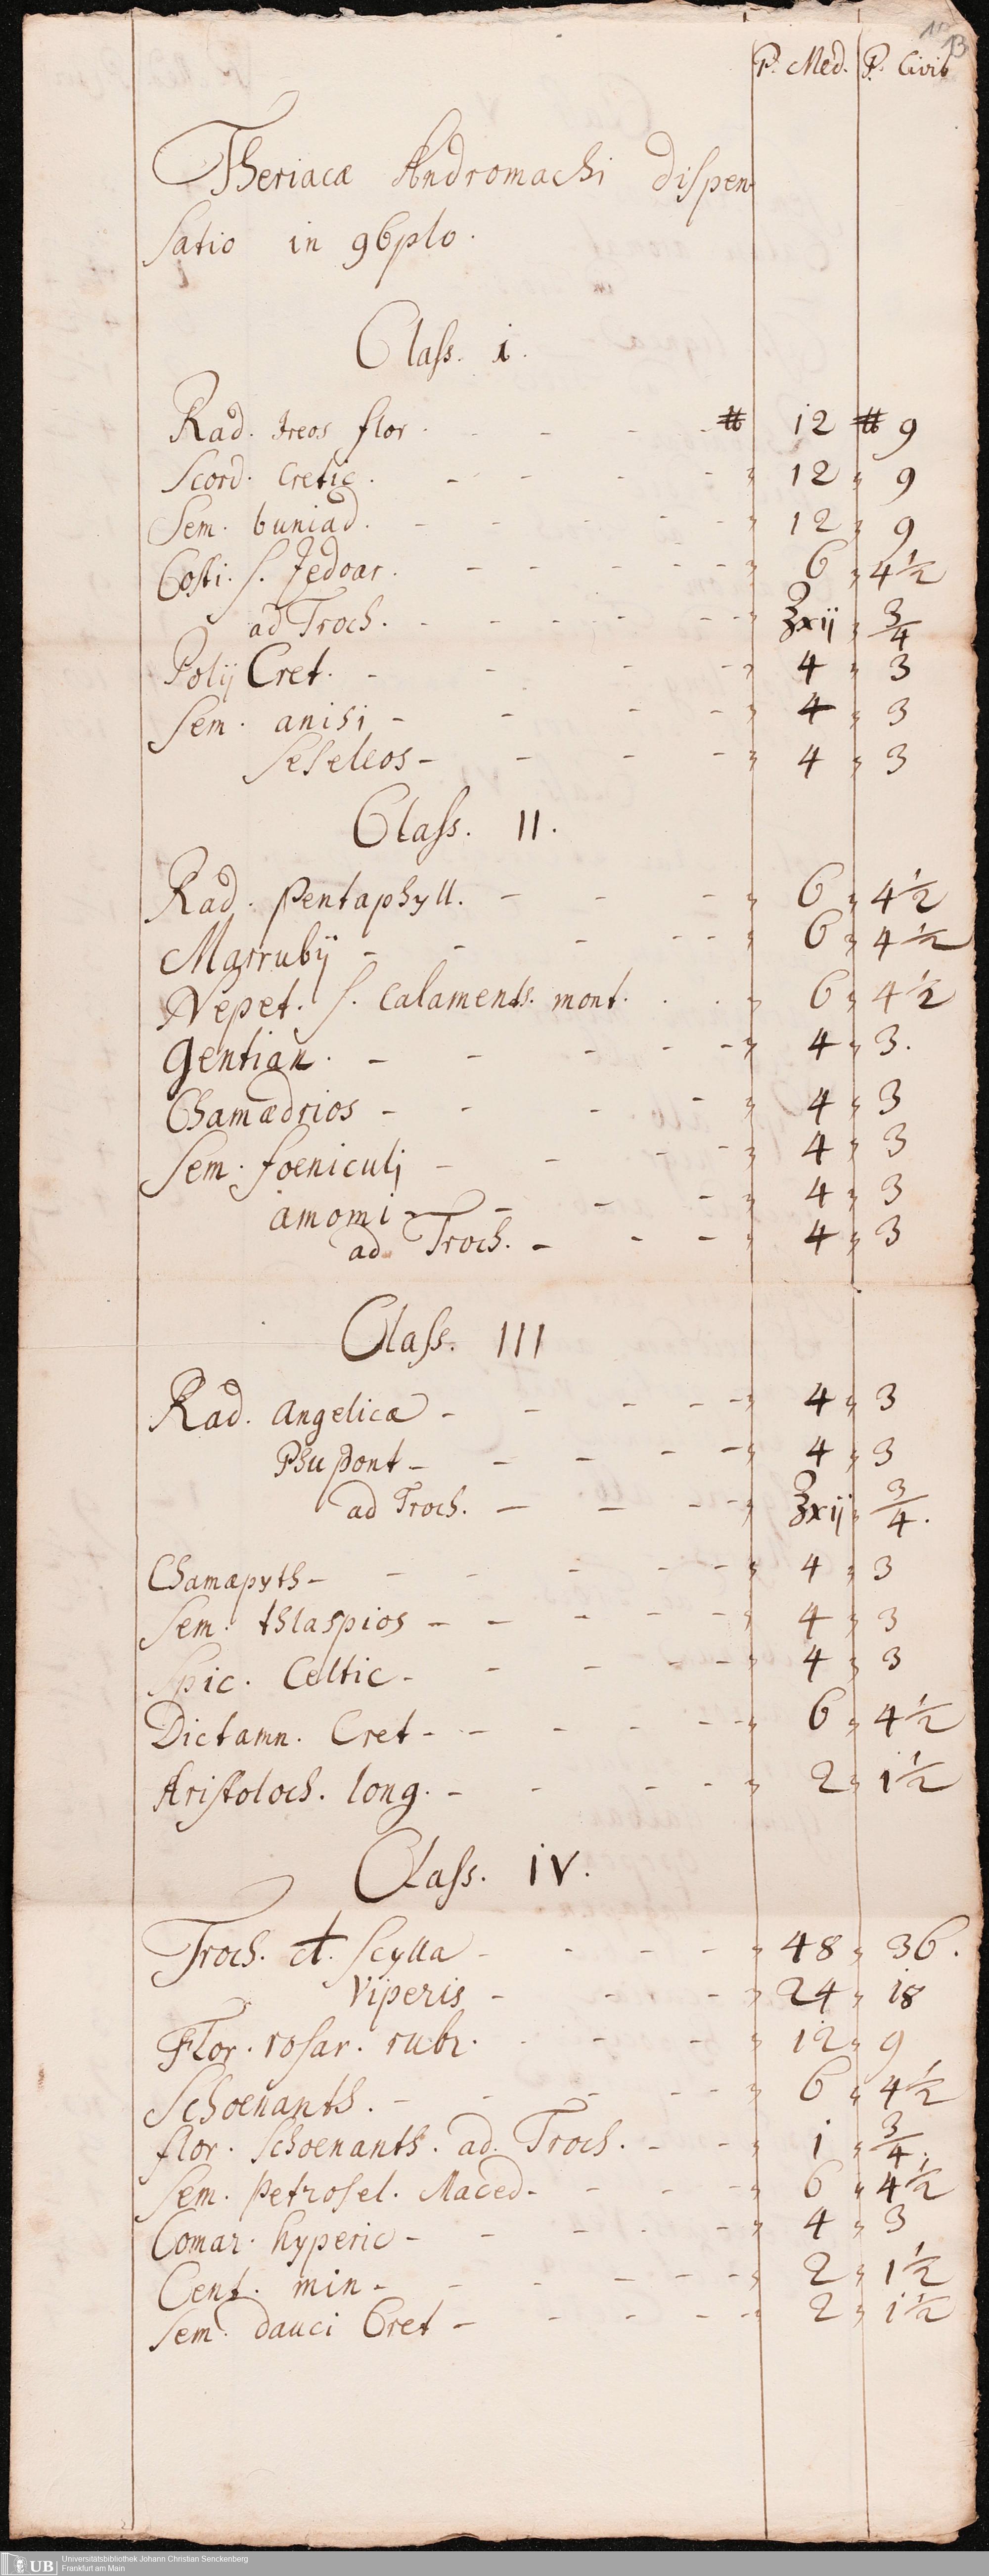 13
P. Med. P. Civib
Theriacæ Andromachi dispen
satio in 96plo.
Class. i.
Rad. Ireos flor. - - - - ℔ 12 ℔ 9
Scord. Cretic. - - - - „ 12 „ 9
Sem. buniad. - - - - - „ 12 „ 9
Costi. s. Zedoar. - - - - - „ 6 „ 4 1/2
ad Troch. - - - - - - „ ℥xij „ 3/4
Polij Cret. - - - - „ 4 „ 3
Sem. anisi - - - - „ 4 „ 3
Seseleos - - - - „ 4 „ 3
Class. II.
Rad. Pentaphyll. - - - „ 6 „ 4 1/2
Marrubij - - - - - „ 6 „ 4 1/2
Nepet. s. Calaments. mont. . . . „ 6 „ 4 1/2
Gentian. - - - - - „ 4 „ 3.
Chamædrios - - - - „ 4 „ 3
Sem. foeniculi - - - - „ 4 „ 3
amomi - - - - „ 4 „ 3
ad Troch. - - - „ 4 „ 3
Class. III
Rad. Angelicæ - - - - - „ 4 „ 3
Phu pont - - - - - „ 4 „ 3
ad Troch. - - - - „ ℥xij „ 3/4.
Chamæpyth - - - - - - „ 4 „ 3
Sem. thlaspios - - - - - „ 4 „ 3
Spic. Celtic - - - - - „ 4 „ 3
Dictamn. Cret - - - - - - „ 6 „ 4 1/2
Aristoloch. long. - - - - „ 2 „ 1 1/2
Class. iV.
Troch. ct. Scylla - - - - „ 48 „ 36.
Viperis - - - „ 24 „ 18
Flor. rosar. rubr. - - - „ 12 „ 9
Schoenanth. - - - - - „ 6 „ 4 1/2
flor. Schoenanth. ad. Troch. - - „ i „ 3/4.
Sem. Petrosel. Maced - - - - „ 6 „ 4 1/2
Comar. hyperic - - - - - „ 4 „ 3
Cent. min - - - - - - „ 2 „ 1 1/2
Sem. dauci Cret - - - - - „ 2 „ i 1/2
UB
Universitätsbibliothek Johann Christian Senckenberg
Frankfurt am Main